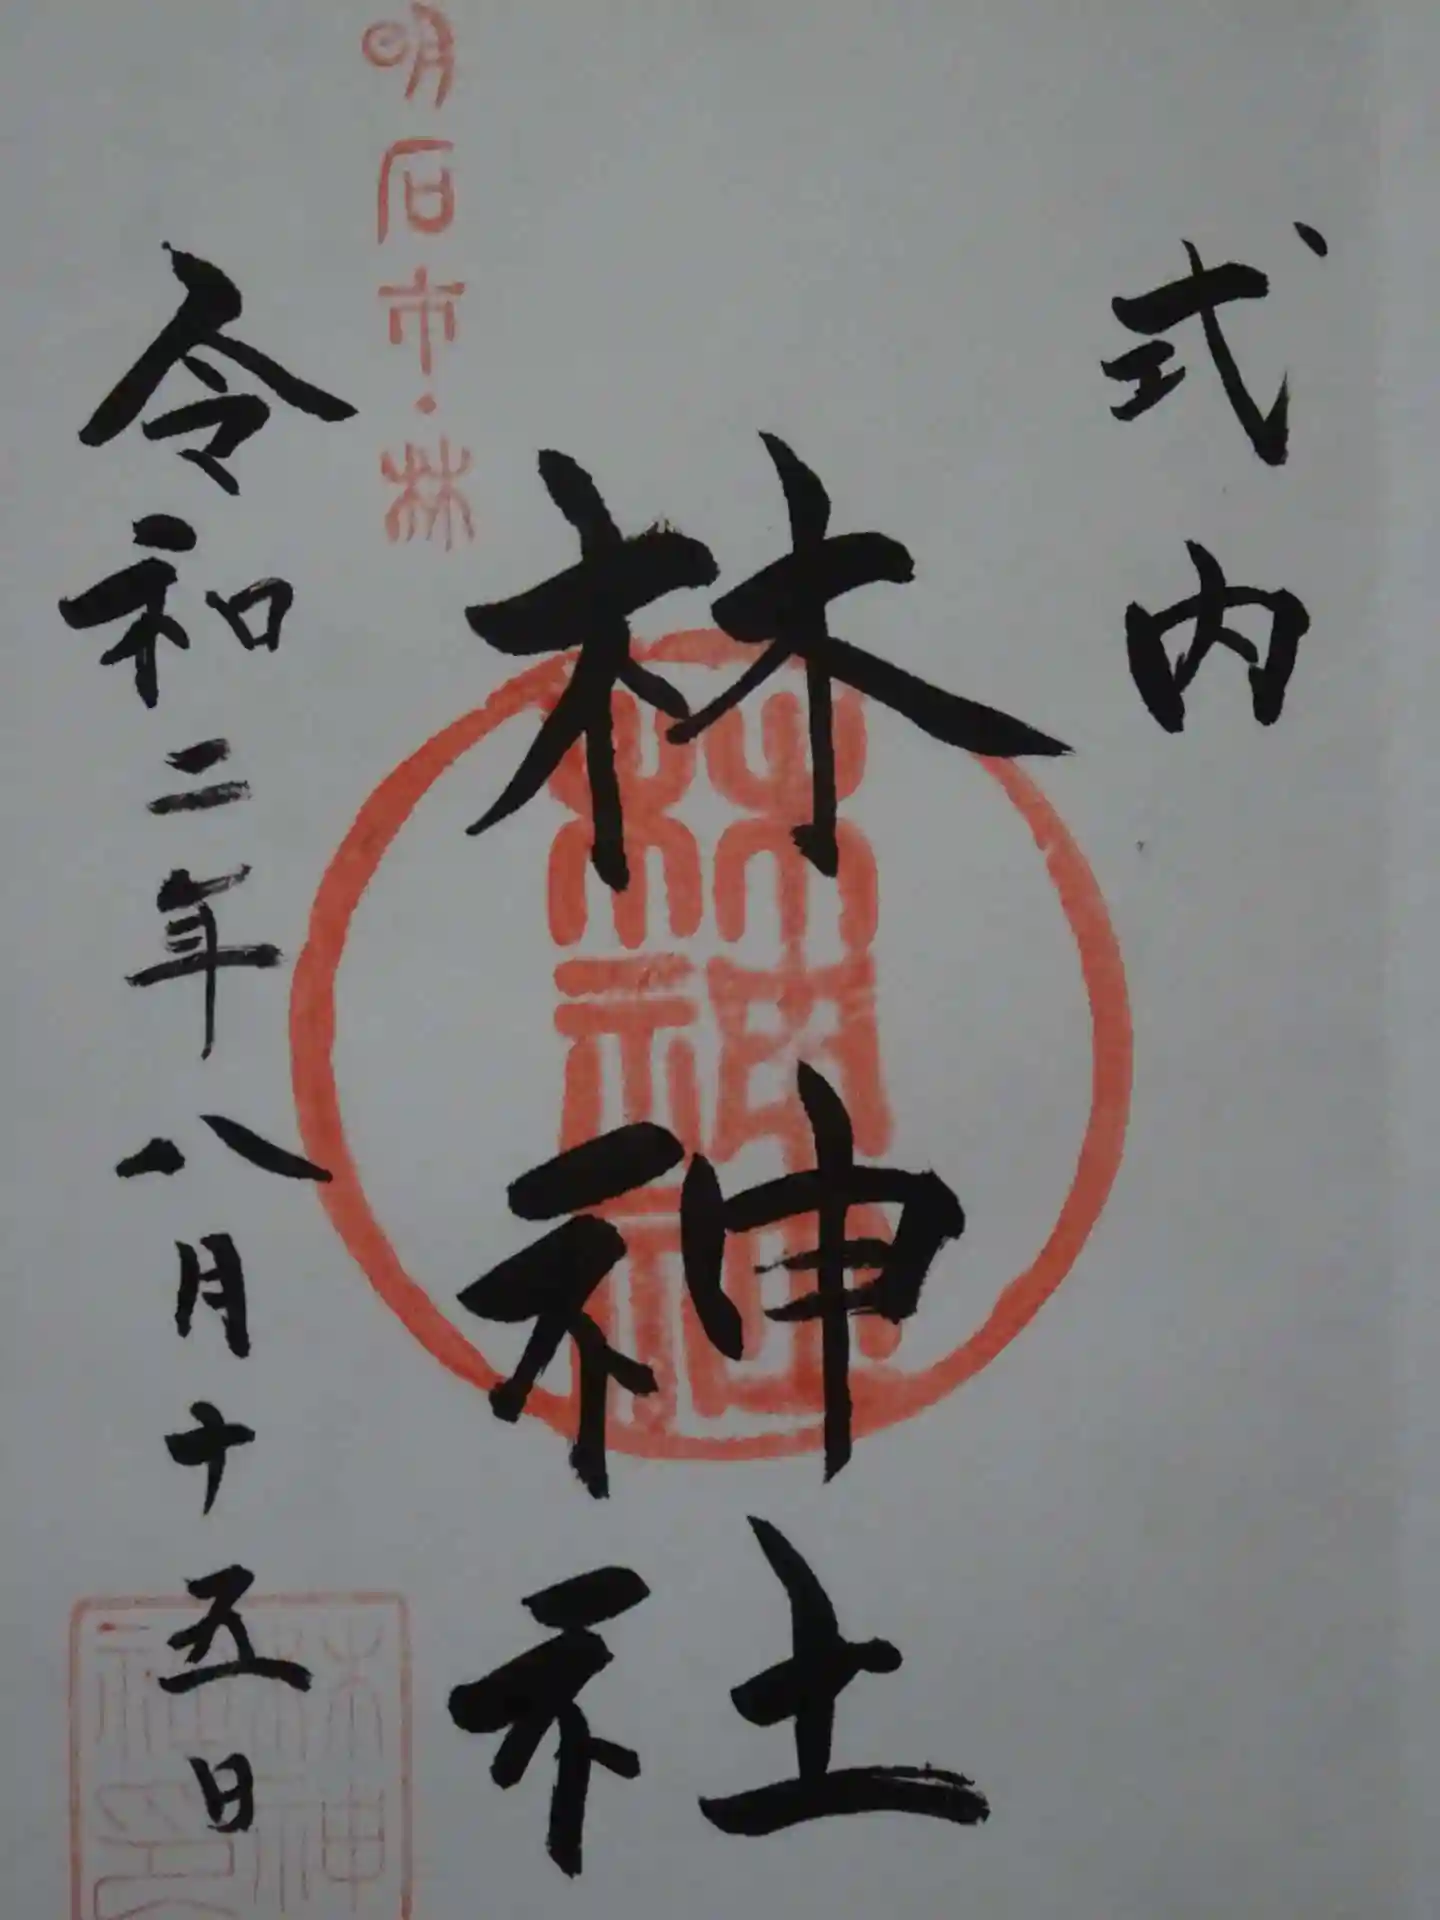 式内
林神社
明石市・林
令和二年八月十五日
林神社